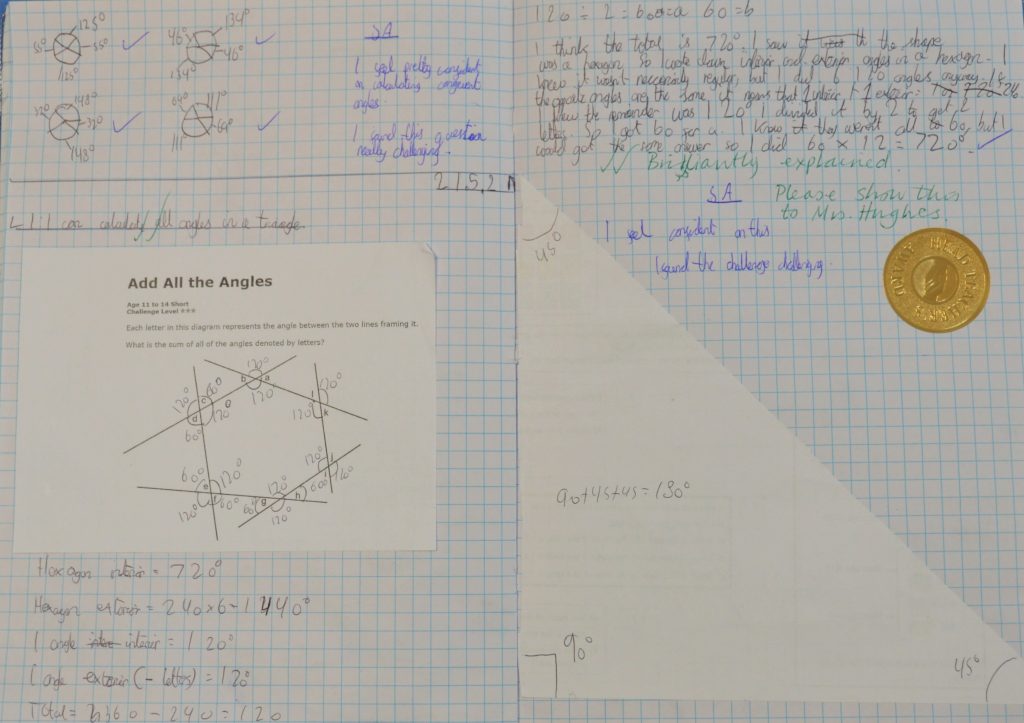 125°
55°
55°
125°
134°
46°
46°
134°
SA
I feel pretty confident
in calculating congruent
angles.
I found this question
really challenging.
32°
148°
32°
148°
69°
111°
69°
111
21.5.21
L.I: I can calculate all angles in a triangle.
Add All the Angles
Age 11 to 14 Short
Challenge Level ★★★
Each letter in this diagram represents the angle between the two lines framing it.
What is the sum of all of the angles denoted by letters?
120°
b a
120°
60°
c
120°
d
120°
60°
l
120°
120°
k
60°
e
120°
f
60°
120°
120°
j
i
60°
120°
h
g
60°
120°
Hexagon interior = 720°
Hexagon exterior = 240×6=1440°
1 angle interior = 120°
1 angle exterior (- letters) = 120°
Total= 360 - 240 = 120
120 ÷ 2 = 60 60=a 60=b
I think the total is 720°. I saw the shape
was a hexagon so I wrote down interior and exterior angles in a hexagon. I
knew it wasn't necessarily regular but I did 6 120 angles anyway. If
the opposite angles are the same, it means that 1 interior + 1 exterior =
I knew the remainder was 120 I divided it by 2 to get 2
letters. So I got 60 for a. I know if they weren't all 60, but I
would get the same answer so I did 60 × 12 = 720°
Brilliantly explained.
SA
Please show this
to Mrs. Hughes.
I feel confident on this
I found the challenge challenging.
45°
90+45+45=180°
90°
45°